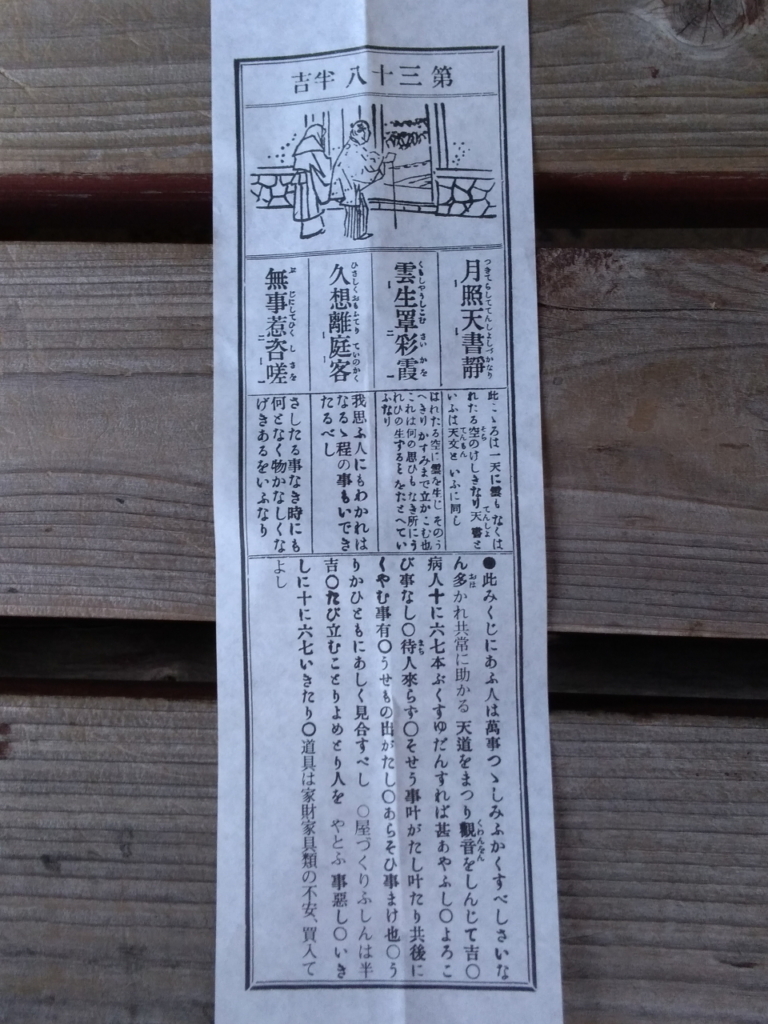 第三十八半吉
月照天書靜
つきてらしててんしよしづかなり
雲生罩彩霞
久想離庭客
無事惹咨嗟
此こゝろは一天に雲もなくは
れたる空のけしきなり天書と
いふは天文といふに同し
はれたる空に雲を生じそのう
へきりかすみまで立かこむ也
これは何の思ひもなき所にう
れひの生するをたとへてい
ふなり
我思ふ人にもわかれは
なるゝ程の事もいでき
たるべし
さしたる事なき時にも
何となく物かなしくな
げきあるをいふなり
●此みくじにあふ人は萬事つゝしみふかくすべしさいな
ん多かれ共常に助かる 天道をまつり觀音をしんじて吉○
病人十に六七本ぶくすゆだんすれば甚あやふし○よろこ
び事なし○待人來らず○そせう事叶がたし叶たり共後に
くやむ事有○うせもの出がたし○あらそひ事まけ也○う
りかひともにあしく見合すべし ○屋づくりふしんは半
吉○たび立むことりよめとり人を やとふ事惡し○いき
しに十に六七いきたり○道具は家財家具類の不安、買入て
よし